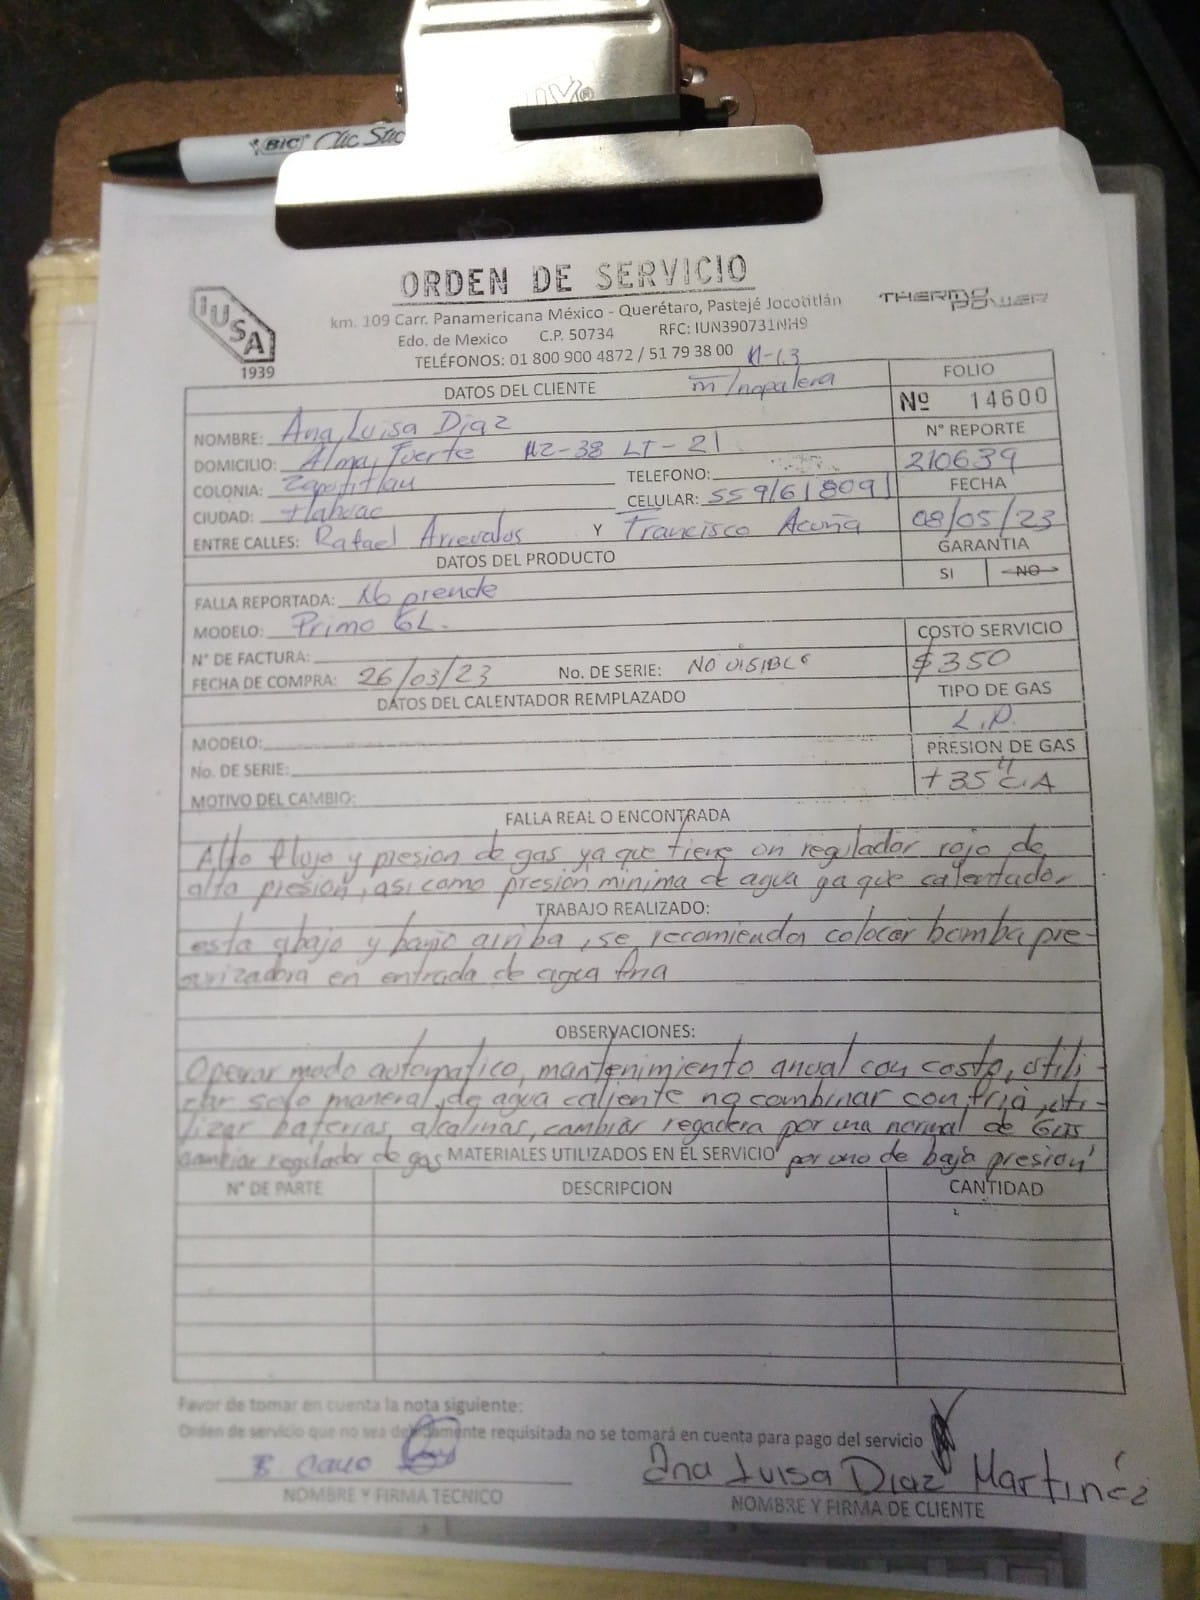 BIC Clic Stic
ORDEN DE SERVICIO
IUSA
1939
THERMO POWER
km. 109 Carr. Panamericana México - Querétaro, Pastejé Jocotitlán
Edo. de Mexico C.P. 50734 RFC: IUN390731NH9
TELÉFONOS: 01 800 900 4872 / 51 79 38 00
DATOS DEL CLIENTE m/nopalera
FOLIO
Nº 14600
NOMBRE: Ana Luisa Diaz
N° REPORTE
DOMICILIO: Alma Fuerte MZ-38 LT-21
210639
COLONIA: Zapotitlau TELEFONO:
FECHA
CIUDAD: tlahuac CELULAR: 5591618091
08/05/23
ENTRE CALLES: Rafael Arrevalos Y Francisco Acuña
GARANTIA
DATOS DEL PRODUCTO
SI NO
FALLA REPORTADA: No prende
MODELO: Primo 6L.
COSTO SERVICIO
N° DE FACTURA:
$350
FECHA DE COMPRA: 26/03/23 No. DE SERIE: NO VISIBLE
TIPO DE GAS
DATOS DEL CALENTADOR REMPLAZADO
L.P.
MODELO:
PRESION DE GAS
No. DE SERIE:
+35" C.A
MOTIVO DEL CAMBIO:
FALLA REAL O ENCONTRADA
Alto flujo y presion de gas ya que tiene un regulador rojo de
alta presión, asi como presión minima de agua ya que calentador
TRABAJO REALIZADO:
esta abajo y baño arriba, se recomienda colocar bomba pre-
surizadora en entrada de agua fria
OBSERVACIONES:
Operar modo automatico, mantenimiento anual con costo, utili-
zar solo maneral de agua caliente no combinar con fria, uti-
lizar baterias alcalinas, cambiar regadera por una normal de
cambiar regulador de gas por uno de baja presion
MATERIALES UTILIZADOS EN EL SERVICIO
N° DE PARTE DESCRIPCION CANTIDAD
Favor de tomar en cuenta la nota siguiente:
Orden de servicio que no sea debidamente requisitada no se tomará en cuenta para pago del servicio
Ana Luisa Diaz Martinéz
NOMBRE Y FIRMA TECNICO
NOMBRE Y FIRMA DE CLIENTE